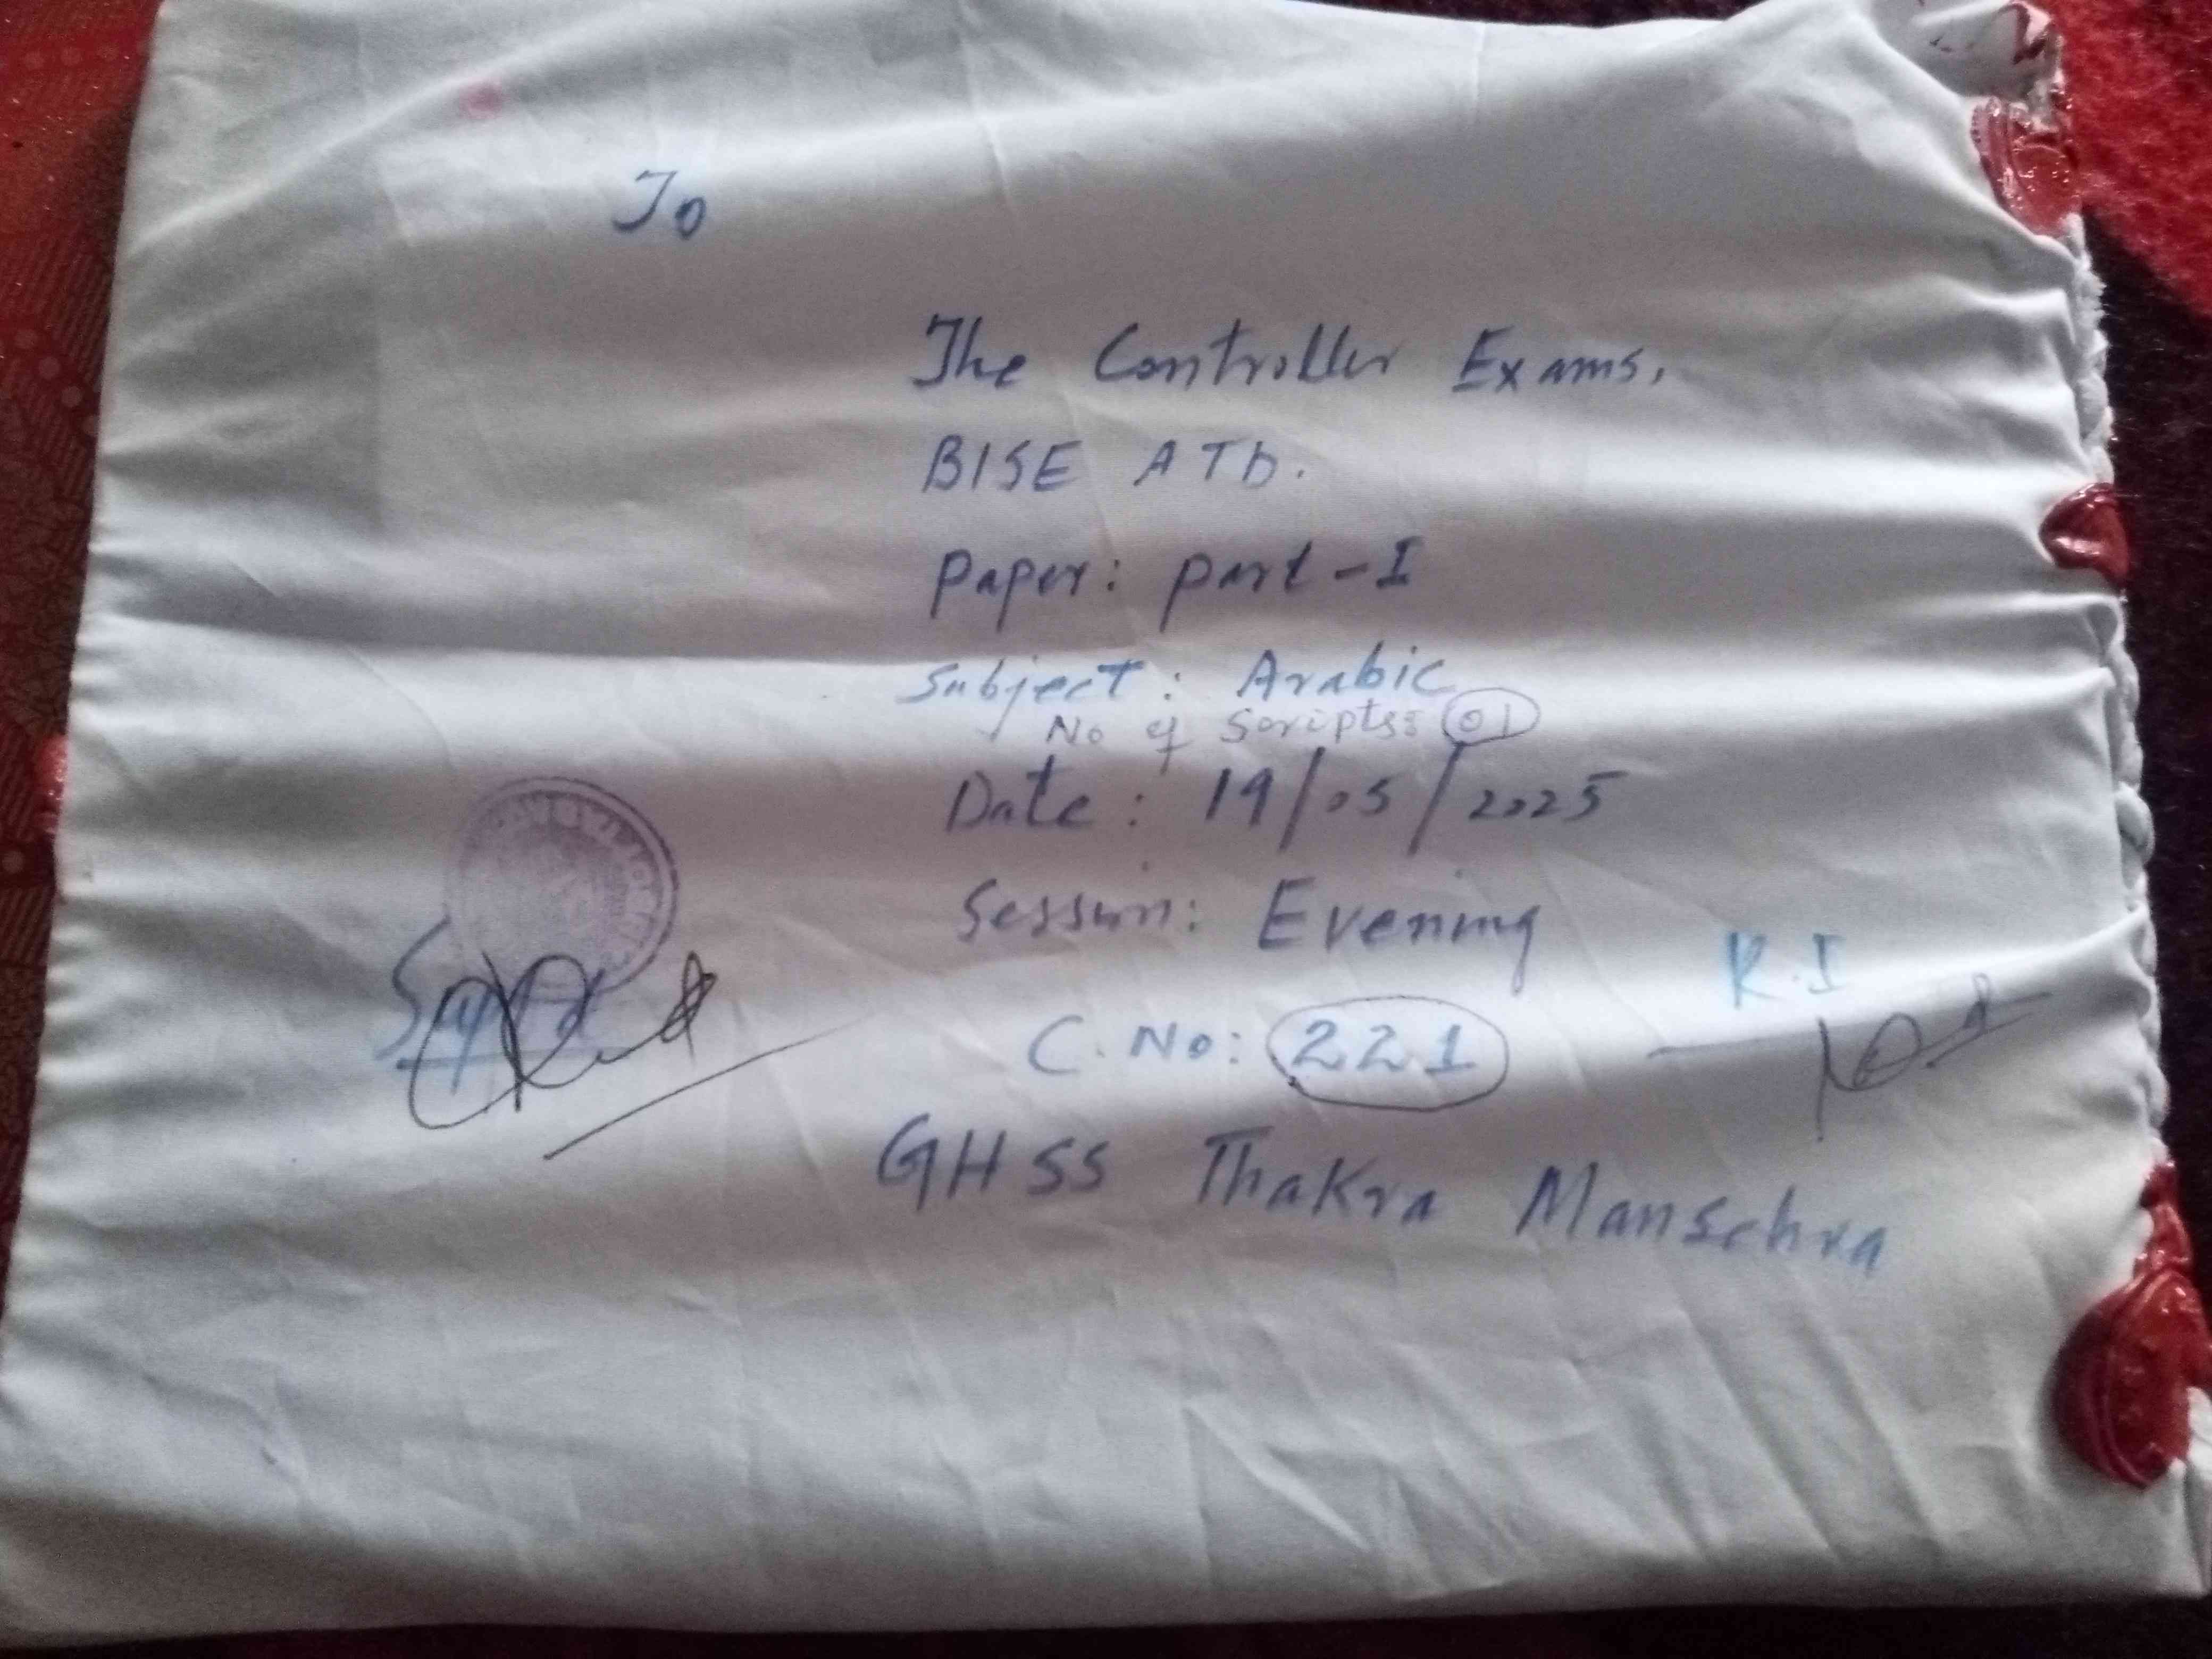 To
The Controller Exams,
BISE ATD.
Paper: part-I
Subject: Arabic
No of Scripts: 01
Date: 19/05/2025
Session: Evening
R.I
Supdt
C.No: 221
GHSS Thakra Mansehra